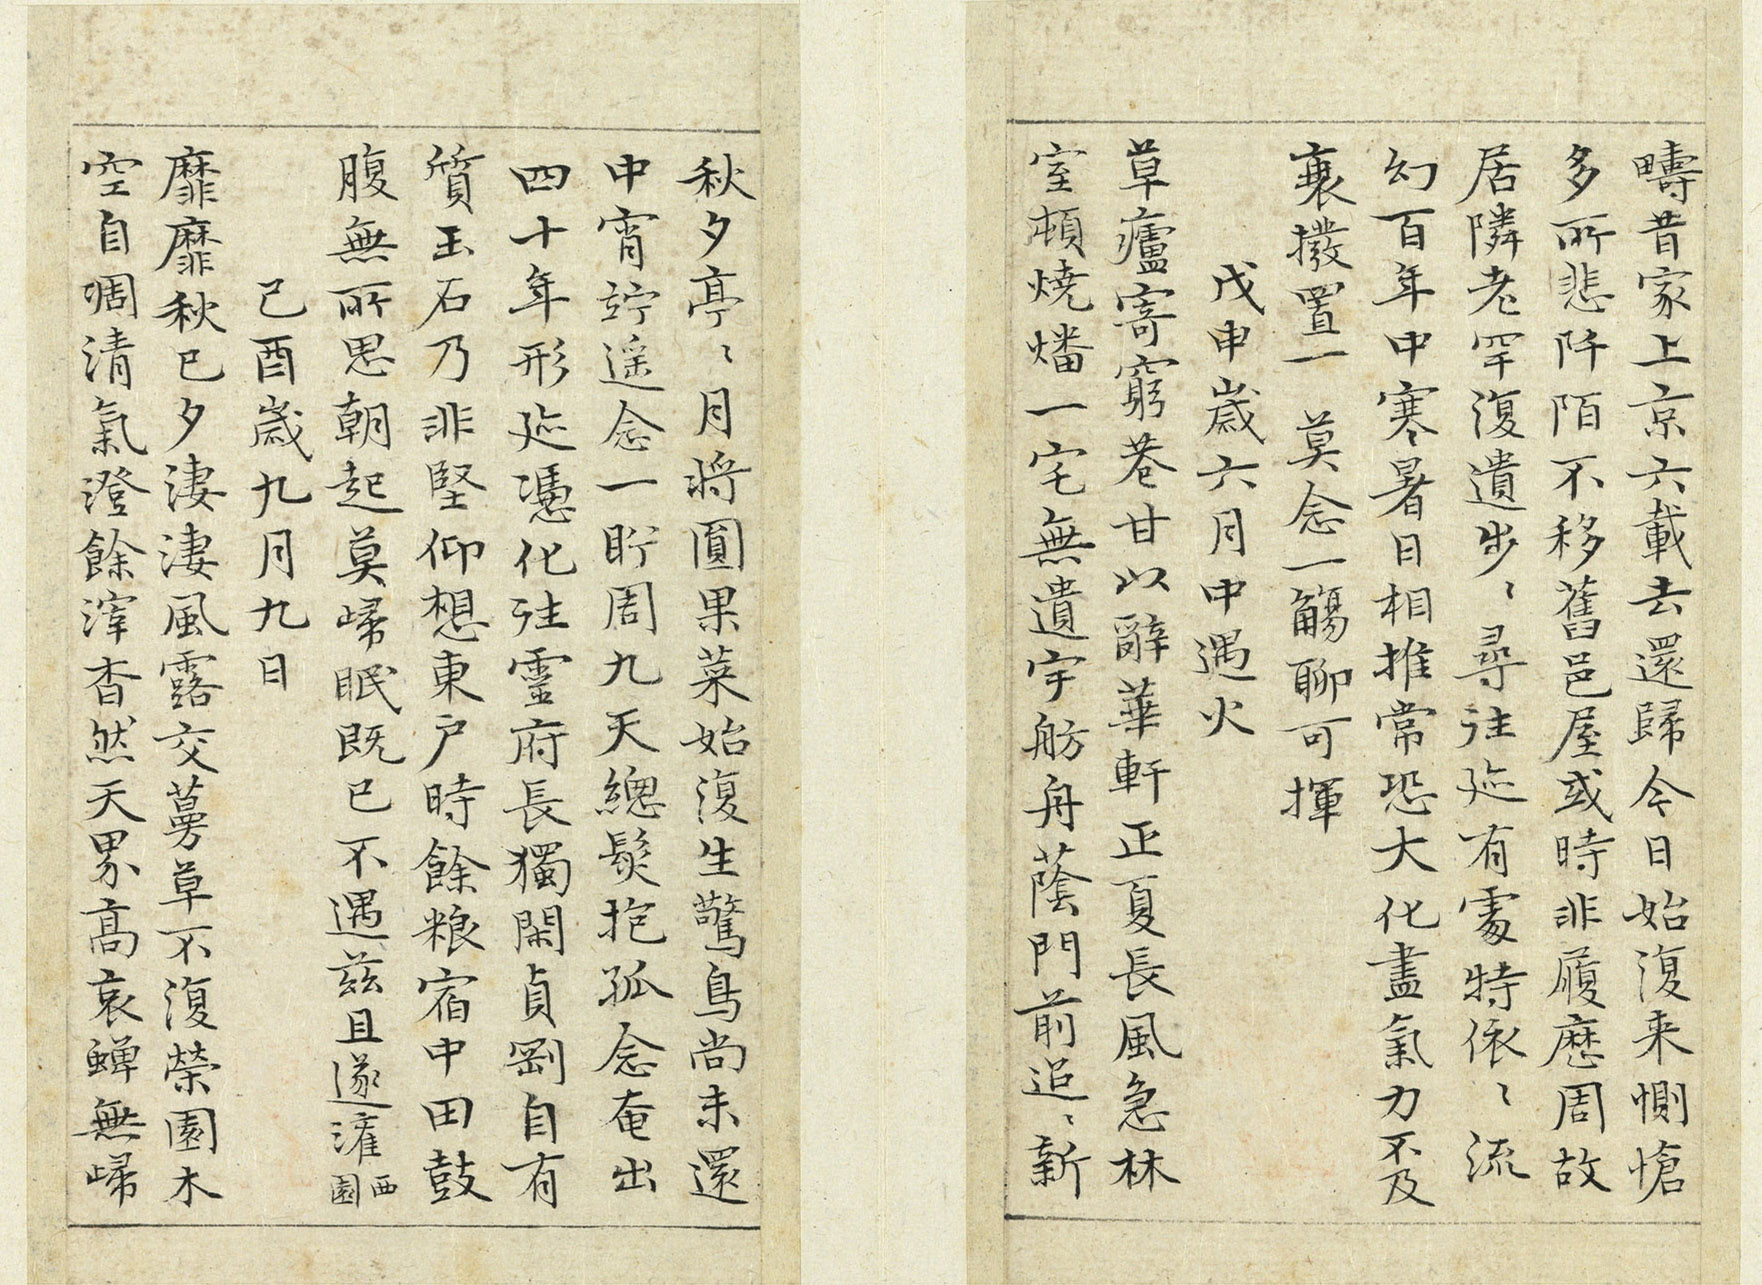 疇昔家上京六載去還歸今日始復来惻愴
多所悲阡陌不移舊邑屋或時非履歴周故
居隣老罕復遺步〻尋往迹有處特依〻流
幻百年中寒暑日相推常恐大化盡氣力不及
衰撥置一莫念一觴聊可揮
戊申歲六月中遇火
草廬寄窮巷甘以辭華軒正夏長風急林
室頓燒燔一宅無遺宇舫舟蔭門前迢〻新
秋夕亭〻月将圓果菜始復生驚鳥尚未還
中宵竚遥念一盻周九天總髮抱孤念奄出
四十年形迹憑化往靈府長獨閑貞剛自有
質玉石乃非堅仰想東户時餘粮宿中田鼓
腹無所思朝起莫歸眠既已不遇兹且遂灌西園
己酉歲九月九日
靡靡秋已夕淒淒風露交蔓草不復榮園木
空自凋清氣澄餘滓杳然天界高哀蟬無歸